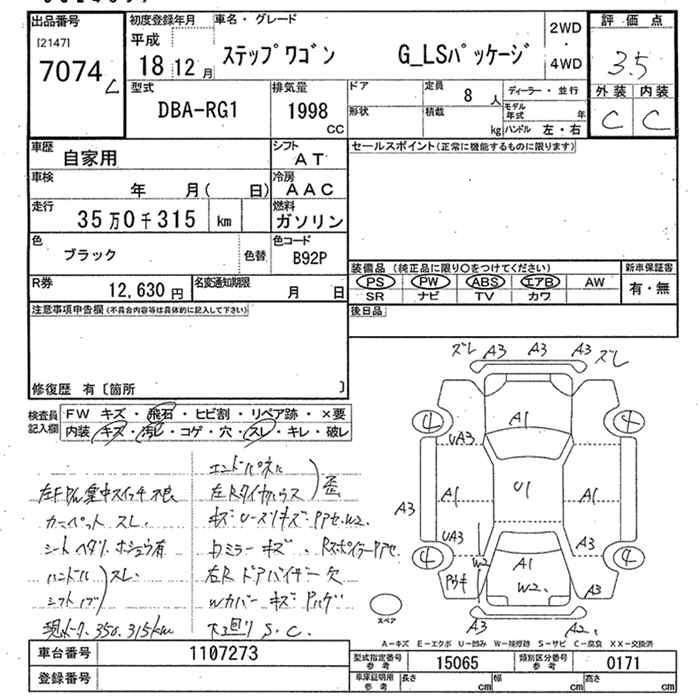 出品番号
[2147]
7074
初度登録年月
平成
18 12 月
車名・グレード
ステップワゴン G_LSパッケージ
2WD
・
4WD
評価点
3.5
外装 内装
C C
型式
DBA-RG1
排気量
1998
CC
ドア
形状
定員
8 人
積載
kg
ディーラー・並行
モデル年式 年
ハンドル 左・右
車歴
自家用
シフト
AT
車検
年 月( 日)
冷房
AAC
走行
35万0千315 km
燃料
ガソリン
色
ブラック
色替
色コード
B92P
R券
12,630 円
名変通知期限
月 日
セールスポイント(正常に機能するものに限ります)
装備品 (純正品に限り○をつけてください)
PS PW ABS エアB AW
SR ナビ TV カワ
新車保証書
有・無
後日品
注意事項申告欄(不具合内容等は具体的に記入して下さい)
修復歴 有〔箇所 〕
検査員記入欄
FW キズ・飛石・ヒビ割・リペア跡・×要
内装 キズ・汚レ・コゲ・穴・スレ・キレ・破レ
左F PW集中スイッチ不良
カーペットスレ.
シートヘタリ. ホシュウ有
ハンドル
シフトノブ
スレ.
現メータ 350.315km
エンドパネル
左Rタイヤハウス
歪
キズ・Uーズリキズ・PアセW2.
ウミラーキズ. RスポイラーPアセ.
右Rドアバイザー欠
Wカバーキズ Pハゲ
下廻り S.C.
ズレ A3 A3 A3 ズレ
4 A1 4
UA3
A3 A1 U1 A1 A3
UA3 A3
4 W2 A1 4
W2. A3
A3 A2.
スペア
A-キズ E-エクボ U-凹み W-補修跡 S-サビ C-腐食 XX-交換済
車台番号
1107273
登録番号
型式指定番号 参考
15065
類別区分番号 参考
0171
車庫証明用 参考
長さ cm
幅 cm
高さ cm